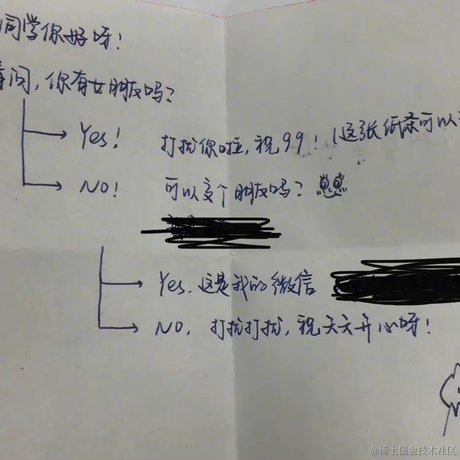 同学你好呀!
请问,你有女朋友吗?
Yes! 打扰你啦,祝99! (这张纸条可以
NO! 可以交个朋友吗?
Yes. 这是我的微信
NO, 打扰打扰,祝天天开心呀!
@稀土掘金技术社区